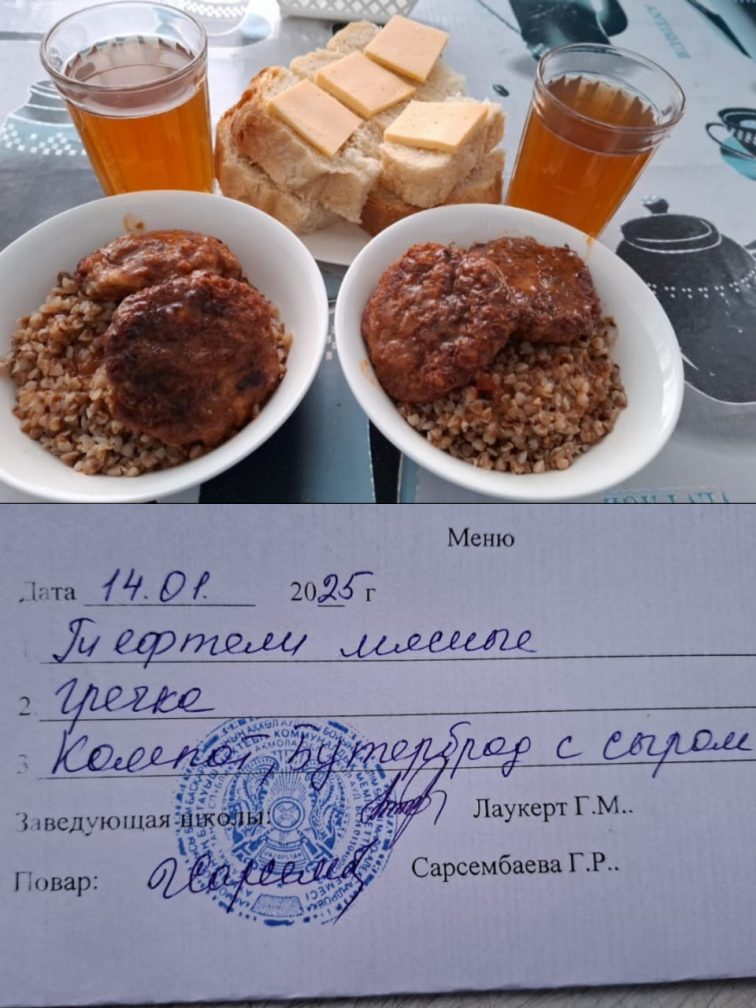 Меню
Дата 14.01. 2025 г
1. Тиефтели мясные
2. гречка
3. Компот, Бутерброд с сыром
Заведующая школы: Лаукерт Г.М..
Повар: Сарсембаева Г.Р..